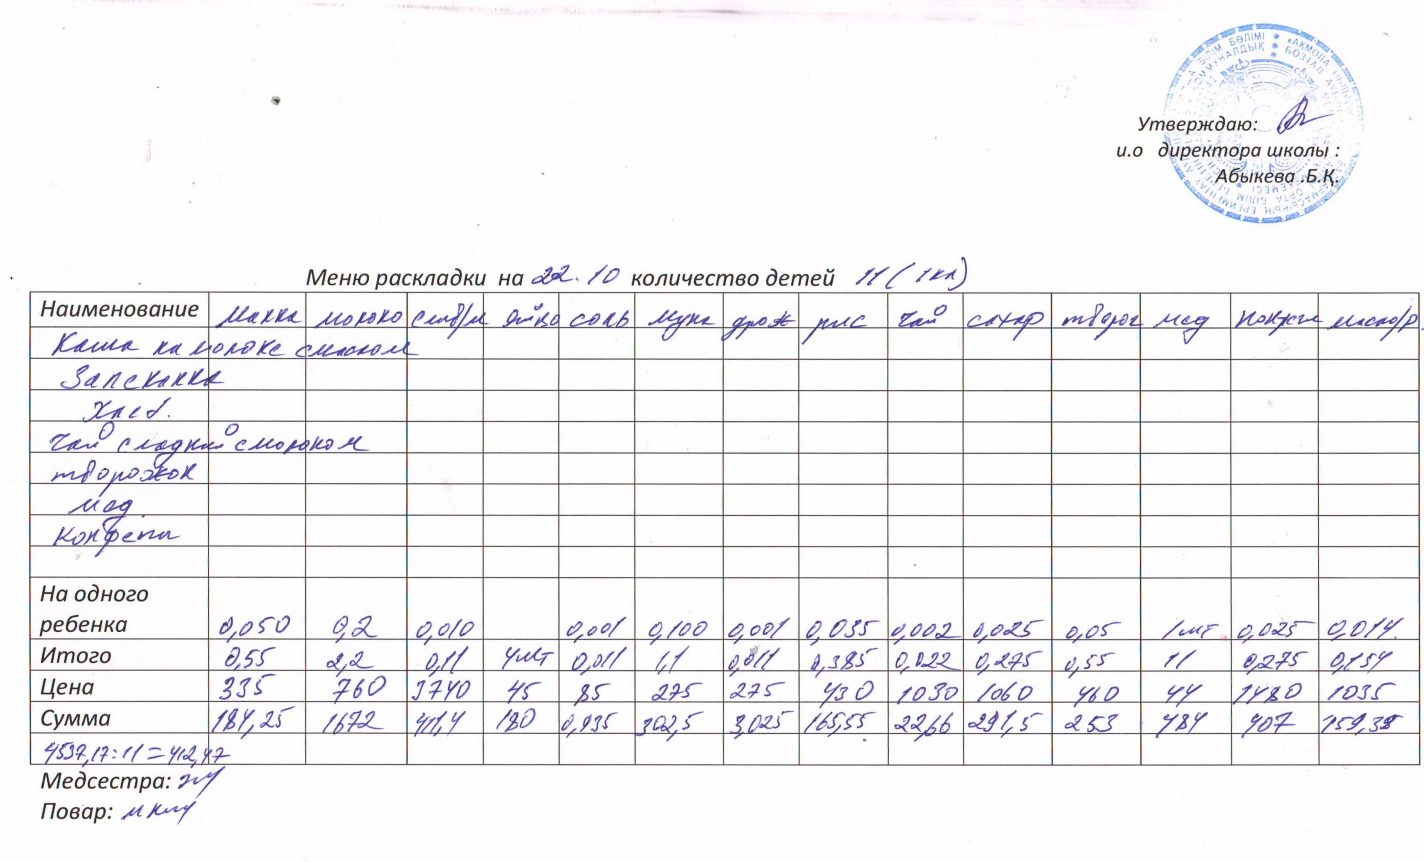 Утверждаю:
и.о директора школы :
Абыкева .Б.Қ.
Меню раскладки на 22.10 количество детей 11 (1кл)
Наименование Манка молоко слив/м яйцо соль мука дрож рис чай сахар творог мед конфеты масло/р
Каша на молоке с маслом
Запеканка
Хлеб.
Чай сладкий с молоком
творожок
мед
Конфеты
На одного
ребенка 0,050 0,2 0,010 0,001 0,100 0,001 0,035 0,002 0,025 0,05 1шт 0,025 0,014
Итого 0,55 2,2 0,11 4шт 0,011 1,1 0,011 0,385 0,022 0,275 0,55 11 0,275 0,154
Цена 335 760 3740 45 85 275 275 430 1030 1060 460 44 1480 1035
Сумма 184,25 1672 411,4 180 0,935 302,5 3,025 165,55 22,66 291,5 253 484 407 159,39
4537,17:11=412,47
Медсестра:
Повар: